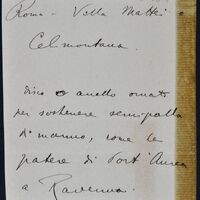 Roma - Villa Mattei e
Celimontana.
disco o anello ornato
per sostenere semipalla
di marmo, come le
patere di Port'Aurea
a Ravenna.